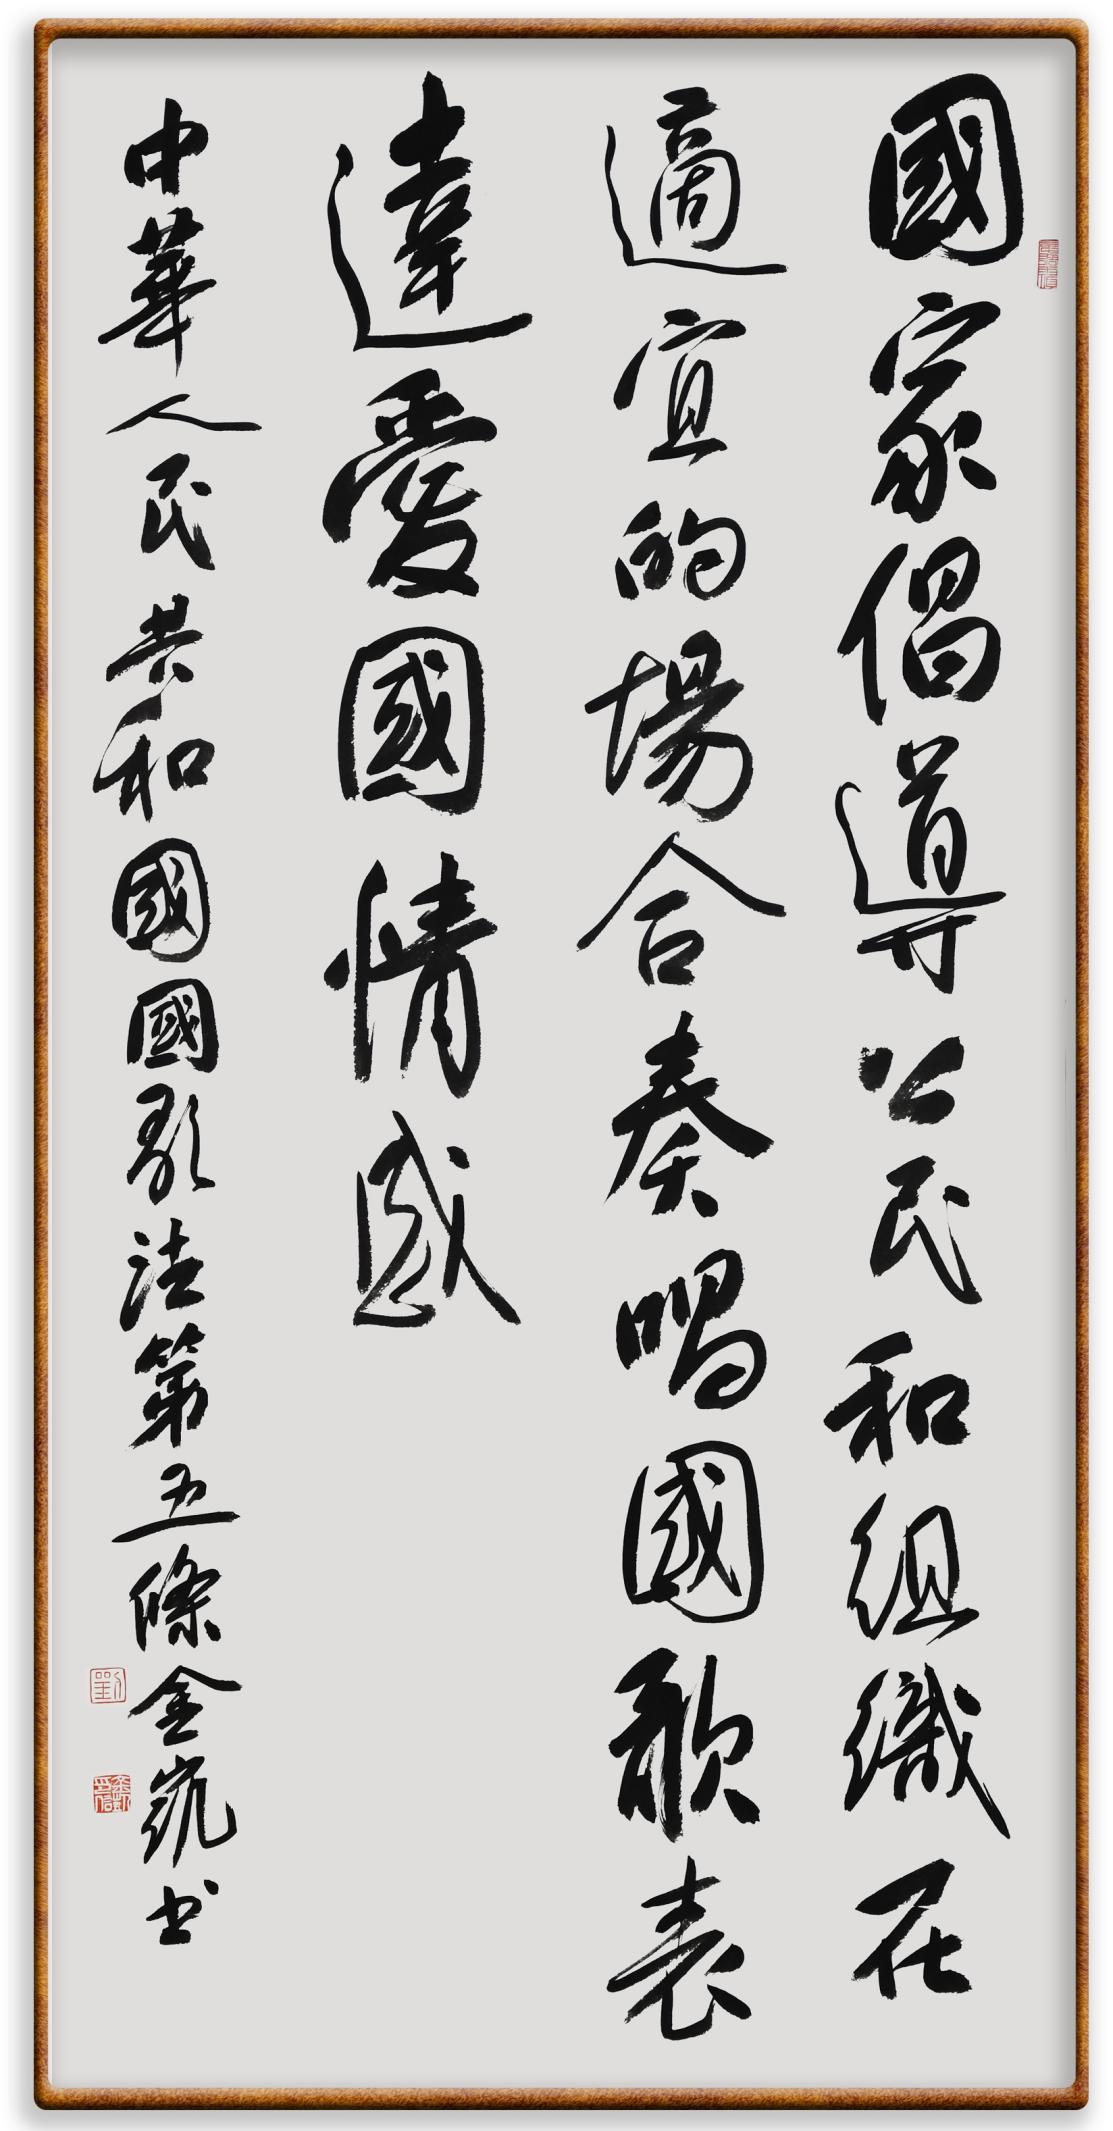 國家倡導公民和組織在
適宜的場合奏唱國歌表
達愛國情感
中華人民共和國國歌法第五條金凱书
劉